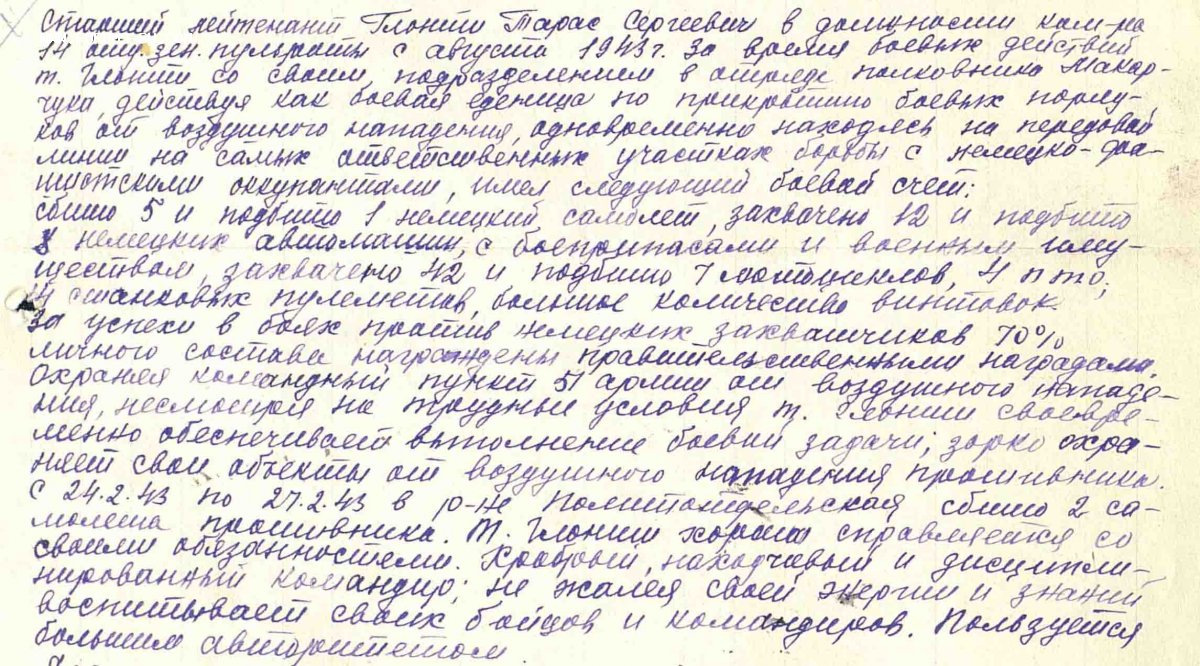 Старший лейтенант Глонти Тарас Сергеевич в должности ком-ра
14 отд. зен. пульроты с августа 1943 г. За время боевых действий
т. Глонти со своим подразделением в отряде полковника Макар-
чука, действуя как боевая еденица по прикрытию боевых поряд-
ков от воздушного нападения, одновременно находясь на передовой
линии на самых ответственных участках борьбы с немецко-фа-
шистскими оккупантами, имел следующий боевой счет:
сбито 5 и подбито 1 немецкий самолет, захвачено 12 и подбито
немецких автомашин, с боеприпасами и военным иму-
ществом, захвачено 42 и подбито 7 мотоциклов, 4 пто,
14 станковых пулеметов, большое количество винтовок.
За успехи в боях против немецких захватчиков 70%
личного состава награждены правительственными наградами.
Охраняя командный пункт 51 армии от воздушного нападе-
ния, несмотря на трудные условия т. Глонти своевре-
менно обеспечивает выполнение боевой задачи; зорко охра-
няет свои объекты от воздушного нападения противника.
с 24.2.43 по 27.2.43 в р-не Политотдельская сбито 2 са-
молета противника. Т. Глонти хорошо справляется со
своими обязанностями. Храбрый, находчивый и дисципли-
нированный командир; не жалея своей энергии и знаний
воспитывает своих бойцов и командиров. Пользуется
большим авторитетом